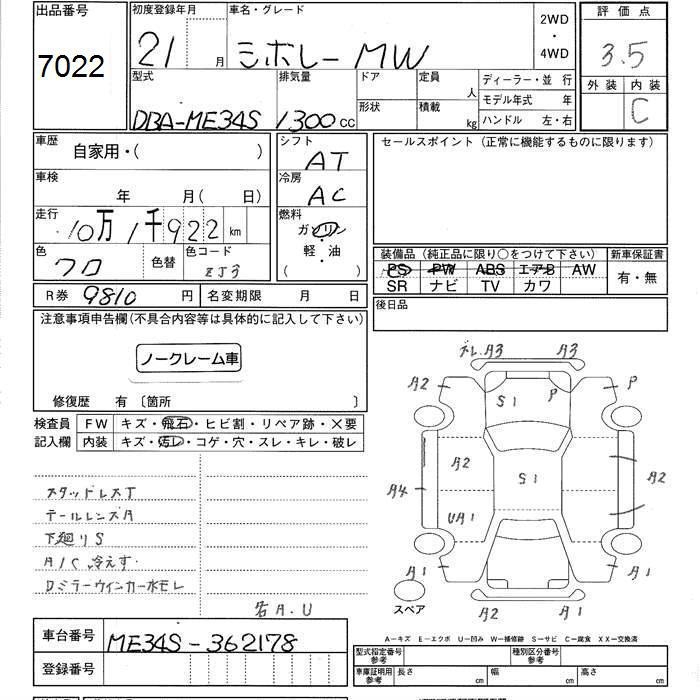 出品番号
7022
初度登録年月
21 月
車名・グレード
シボレー MW
2WD
・
4WD
評価点
3.5
外装 内装
C
型式
DBA-ME34S
排気量
1300 CC
ドア
形状
定員
人
積載
kg
ディーラー・並 行
モデル年式 年
ハンドル 左・右
車歴
自家用・( )
車検
年 月( 日)
走行
10万1千922 km
色
クロ
色替
色コード
ZJ3
シフト
AT
冷房
AC
燃料
ガソリン
・
軽・油
( )
セールスポイント (正常に機能するものに限ります)
装備品 (純正品に限り○をつけて下さい)
PS PW ABS エアB AW
SR ナビ TV カワ
新車保証書
有・無
後日品
R券 9810 円
名変期限 月 日
注意事項申告欄(不具合内容等は具体的に記入して下さい)
ノークレーム車
修復歴 有 〔箇所 〕
検査員
記入欄
FW キズ・飛石・ヒビ割・リペア跡・×要
内装 キズ・汚レ・コゲ・穴・スレ・キレ・破レ
スタッドレスT
テールレンズA
下廻りS
A/C冷えず
Dミラーウインカー水モレ
若A.U
ズレ A3 A3
A2 S1 P P
A4 A2 S1 A2
UA1
A1 A1
A2 A2
スペア
A―キズ E―エクボ U―凹み W―補修跡 S―サビ C―腐食 XX―交換済
車台番号
ME34S-362178
登録番号
型式指定番号
参考
種別区分番号
参考
車庫証明用
参考
長さ cm
幅 cm
高さ cm